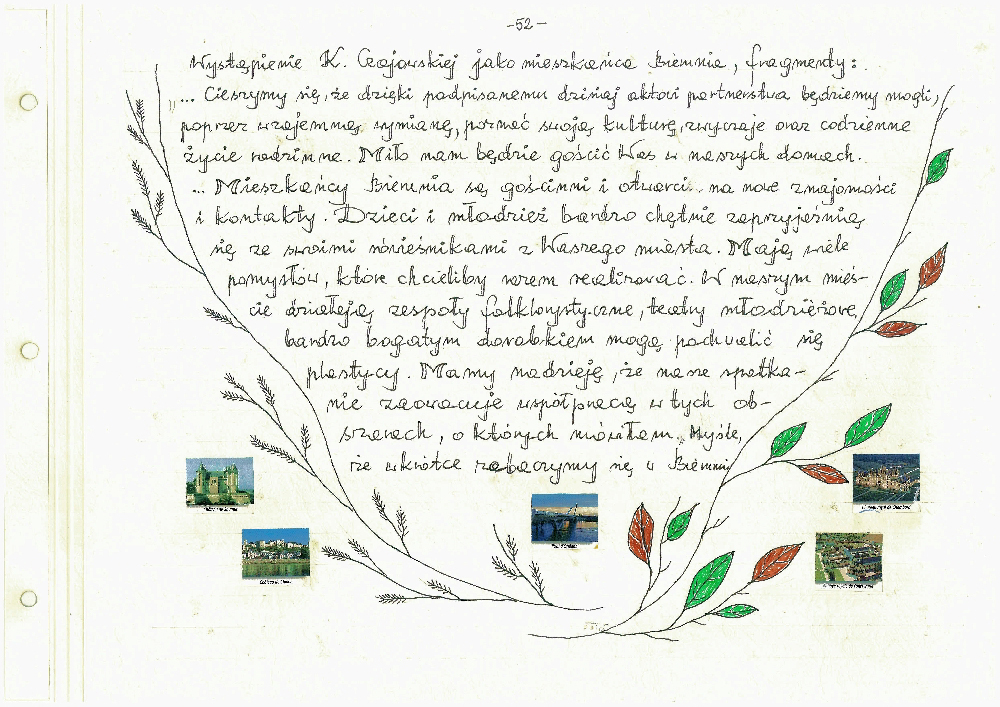 -52-
Wystąpienie K. Czajowskiej jako mieszkańca Biennia, fragmenty:
... Cieszymy się, że dzięki podpisanemu dzisiaj aktowi partnerstwa będziemy mogli,
poprzez wzajemną wymianę, poznać swoją kulturę, zwyczaje oraz codzienne
życie rodzinne. Miło nam będzie gościć Was w naszych domach.
... Mieszkańcy Biennia są gościnni i otwarci na nowe znajomości
i kontakty. Dzieci i młodzież bardzo chętnie zaprzyjaźnią
się ze swoimi rówieśnikami z Waszego miasta. Mają wiele
pomysłów, które chcieliby razem realizować. W naszym mieś-
cie działają zespoły folklorystyczne, teatry młodzieżowe,
bardzo bogatym dorobkiem mogą pochwalić się
plastycy. Mamy nadzieję, że nasze spotka-
nie zaowocuje współpracą w tych ob-
szarach, o których mówiłam. Myślę,
że wkrótce zobaczymy się w